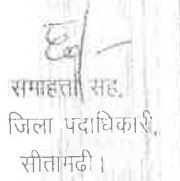 समाहर्ता सह,
जिला पदाधिकारी,
सीतामढी।